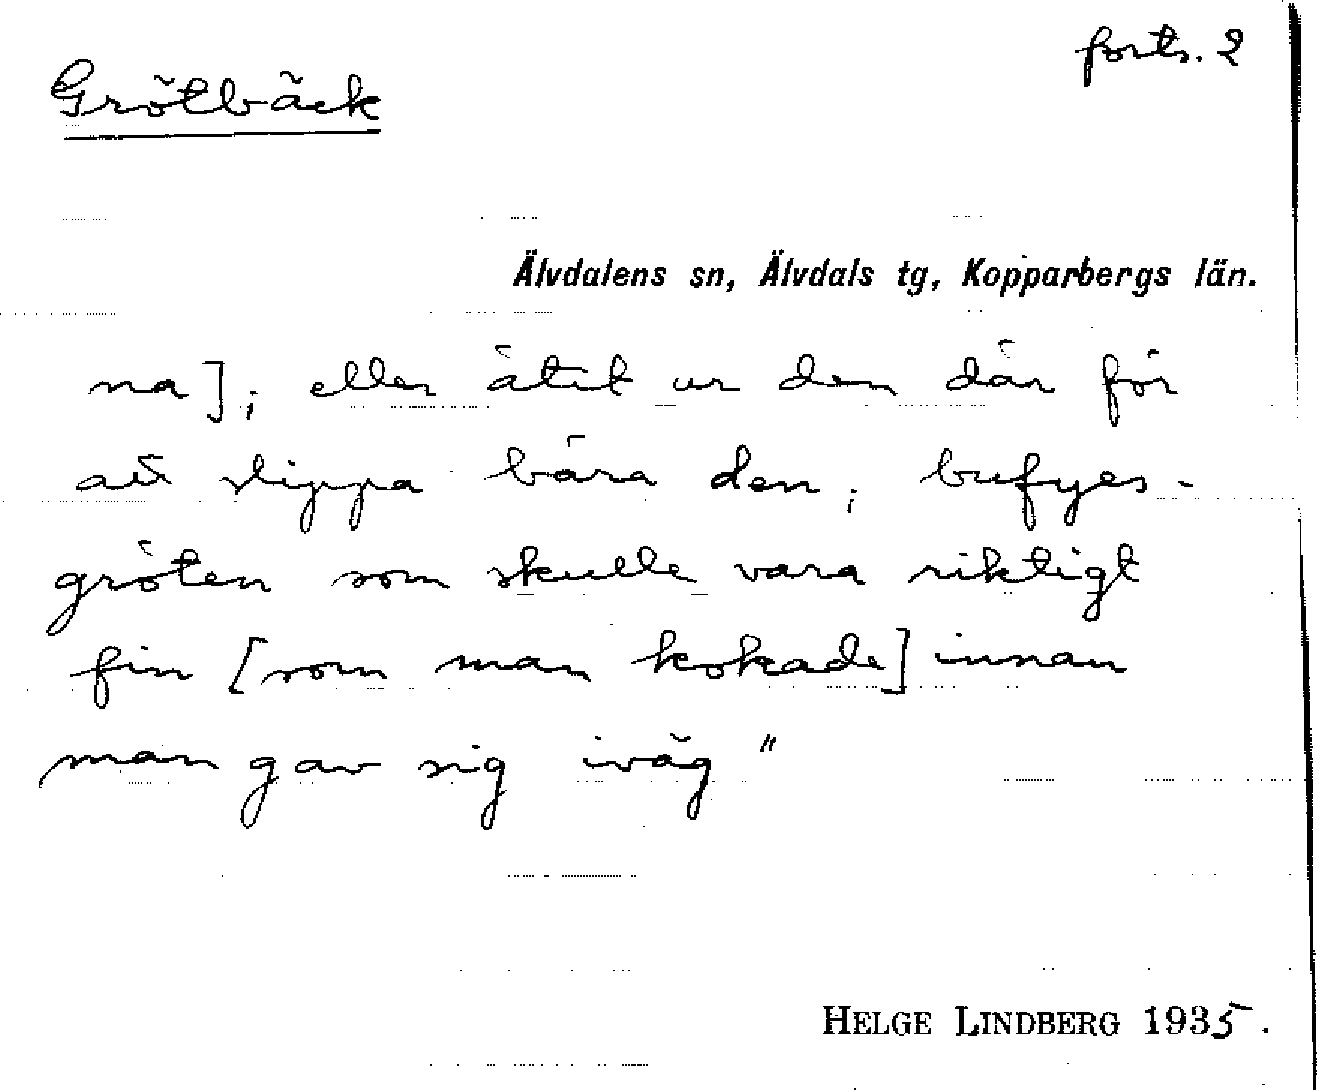 forts. 2
Grötbäck
Älvdalens sn, Älvdals tg, Kopparbergs län.
na]; eller ätit ur den där för
att slippa bära den; bufyes-
gröten som skulle vara riktigt
fin [som man kokade] innan
man gav sig iväg"
HELGE LINDBERG 1935.